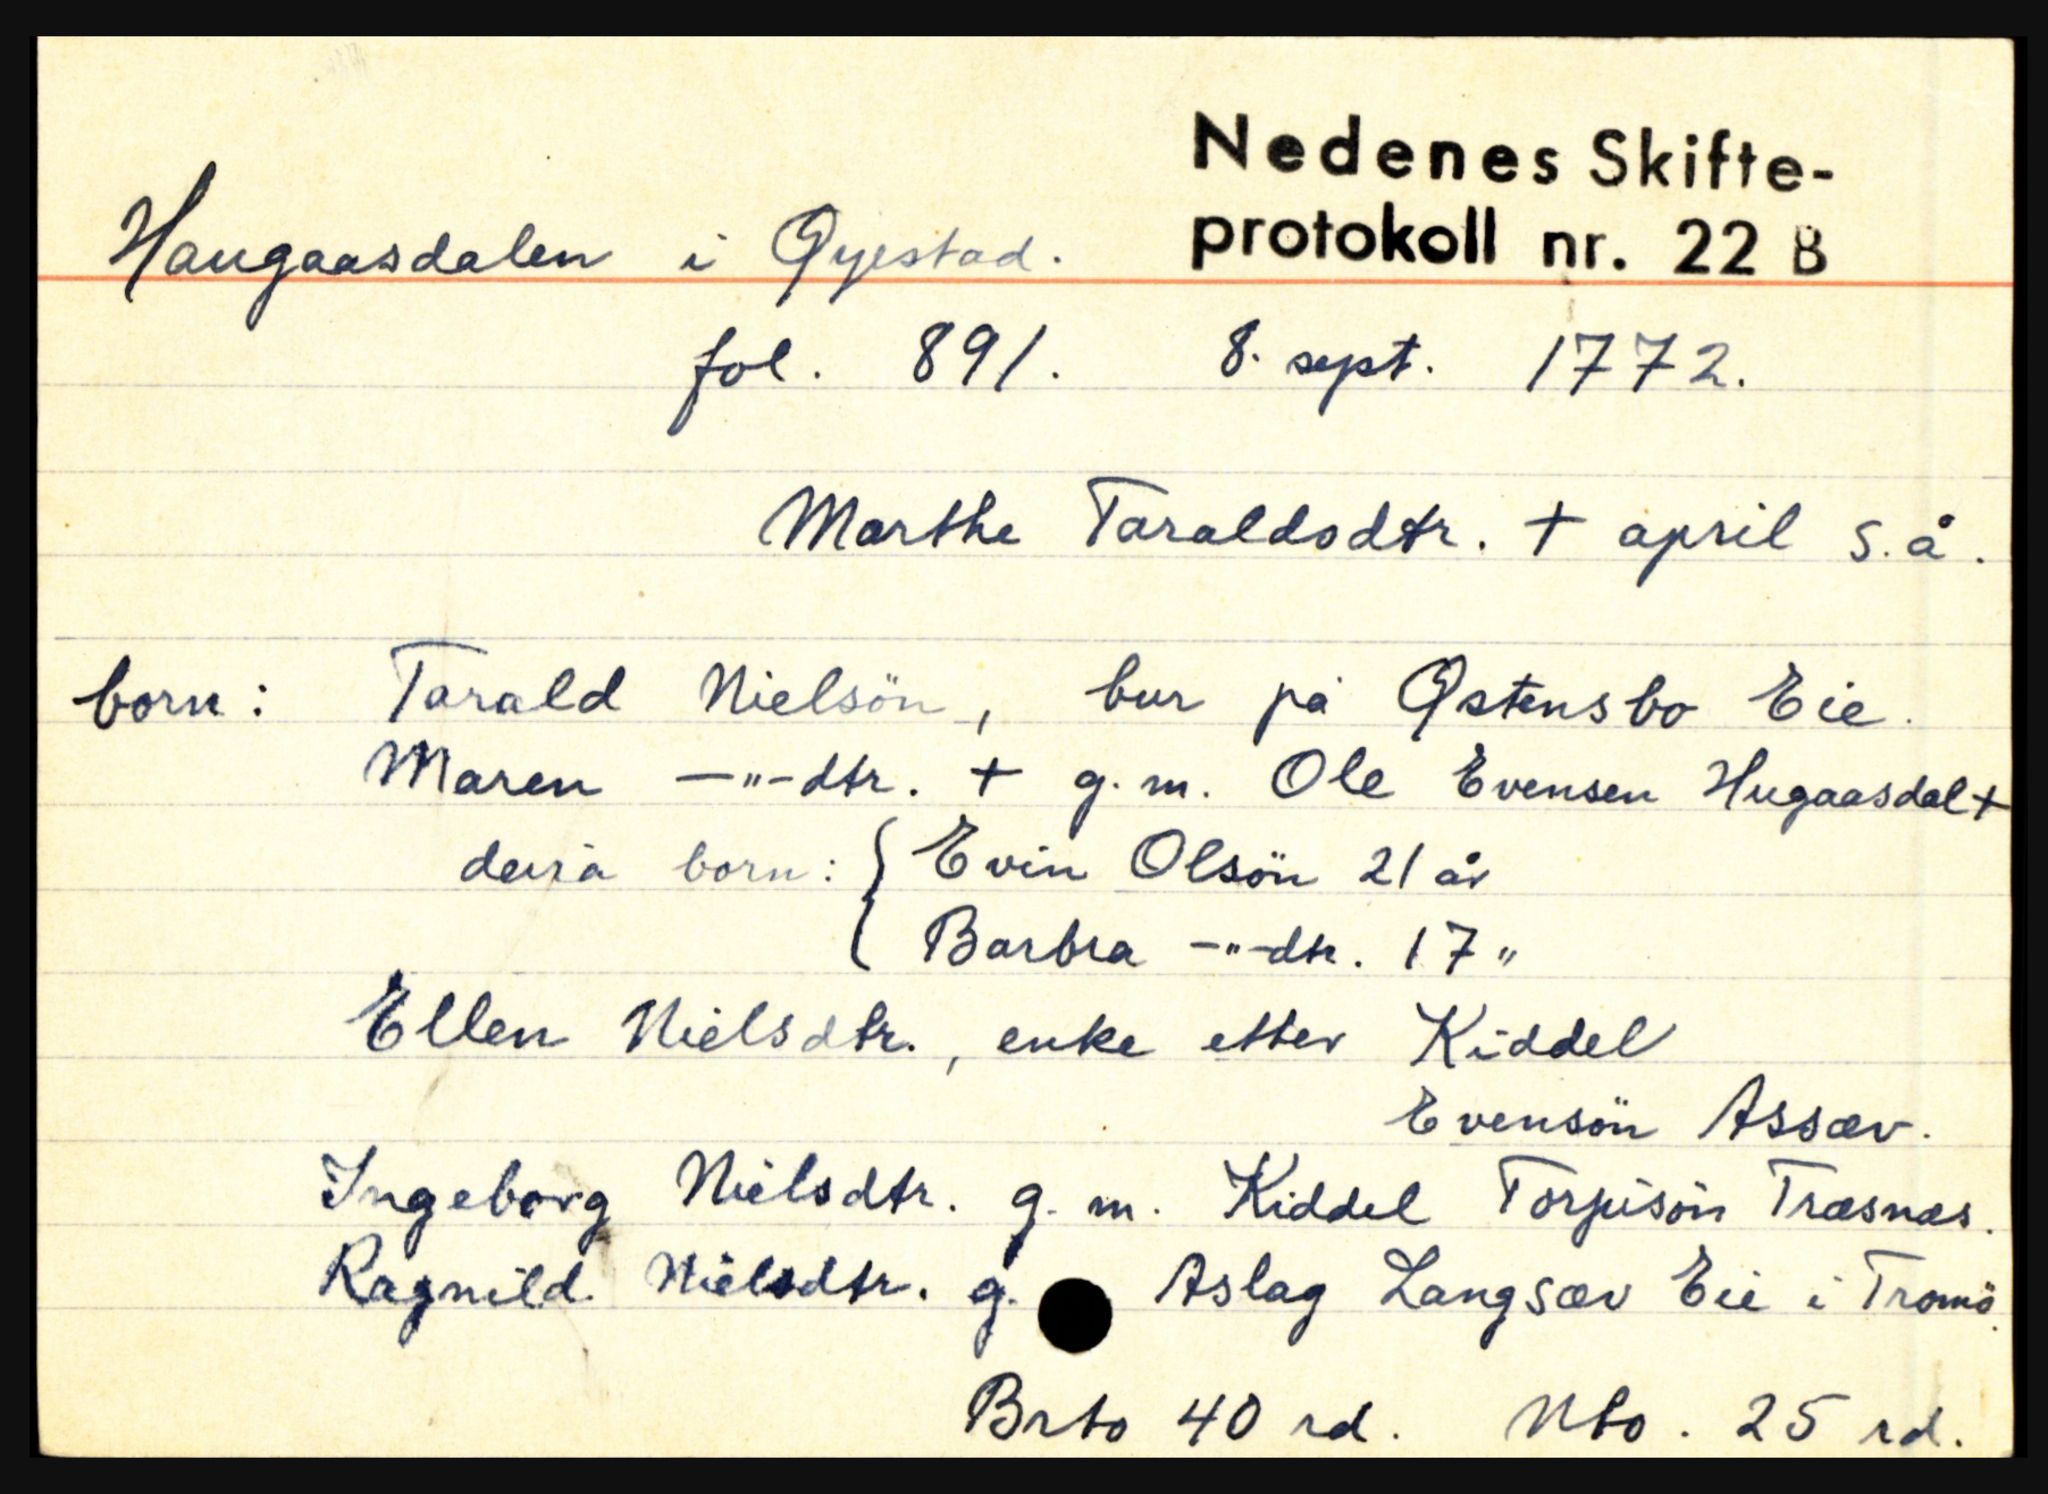 Nedenes Skifte-
protokoll nr. 22 B
Haugaasdalen i Øyestad.
fol. 891. 8. sept. 1772.
Marthe Taraldsdtr. + april s.å.
born: Tarald Nielsön, bur på Østensbo Eie.
Maren —"—dtr. + g.m. Ole Evensen Hugaasdal +
deira born: { Evin Olsön 21 år
Barbra —"—dtr. 17 "
Ellen Nielsdtr., enke etter Kiddel
Evensön Assæv.
Ingeborg Nielsdtr. g. m. Kiddel Torjusön Træsnæs.
Ragnild Nielsdtr. g. Aslag Langsæv Eie i Tromö.
Brto 40 rd. Nto. 25 rd.